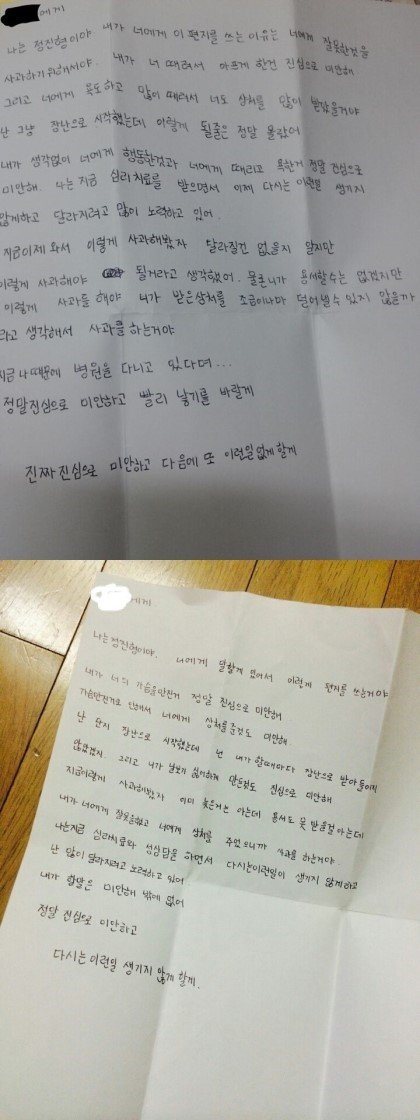 에게
나는 정진형이야 내가 너에게 이 편지를 쓰는 이유는 너에게 잘못한것을
사과하기위해서야. 내가 너 때려서 아프게 한건 진심으로 미안해
그리고 너에게 욕도하고 많이 때려서 너도 상처를 많이 받았을거야
난 그냥 장난으로 시작했는데 이렇게 될줄은 정말 몰랐어
내가 생각없이 너에게 행동한것과 너에게 때리고 욕한거 정말 진심으로
미안해. 나는 지금 심리치료를 받으면서 이제 다시는 이런일 생기지
않게하고 달라지려고 많이 노력하고 있어.
지금이제 와서 이렇게 사과해봤자 달라질건 없을지 알지만
이렇게 사과해야 될거라고 생각했어. 물론 니가 용서할수는 없겠지만
이렇게 사과를 해야 니가 받은상처를 조금이나마 덜어낼수 있지 않을까
라고 생각해서 사과를 하는거야
지금 나때문에 병원을 다니고 있다며...
정말진심으로 미안하고 빨리 낳기를 바랄게
진짜 진심으로 미안하고 다음에 또 이런일없게할게
에게
나는정진형이야. 너에게 말할게 있어서 이렇게 편지를 쓰는거야
내가 너의 가슴을만진거 정말 진심으로 미안해
가슴만진거로 인해서 너에게 상처를준것도 미안해.
난 단지 장난으로 시작했는데 넌 내가 할때마다 장난으로 받아들이지
않았겠지. 그리고 니가 살기 싫어하게 만든것도 진심으로 미안해
지금이렇게 사과해봤자 이미 늦은거는 아는데 용서도 못 받을걸 아는데
내가 너에게 잘못을하고 너에게 상처를 주었으니까 사과를 하는거야.
나는지금 심리치료와 성상담을 하면서 다시는이런일이 생기지 않게하고
난 많이 달라지려고 노력하고 있어
내가 할말은 미안해 밖에 없어
정말 진심으로 미안하고
다시는 이런일 생기지 않게 할게.